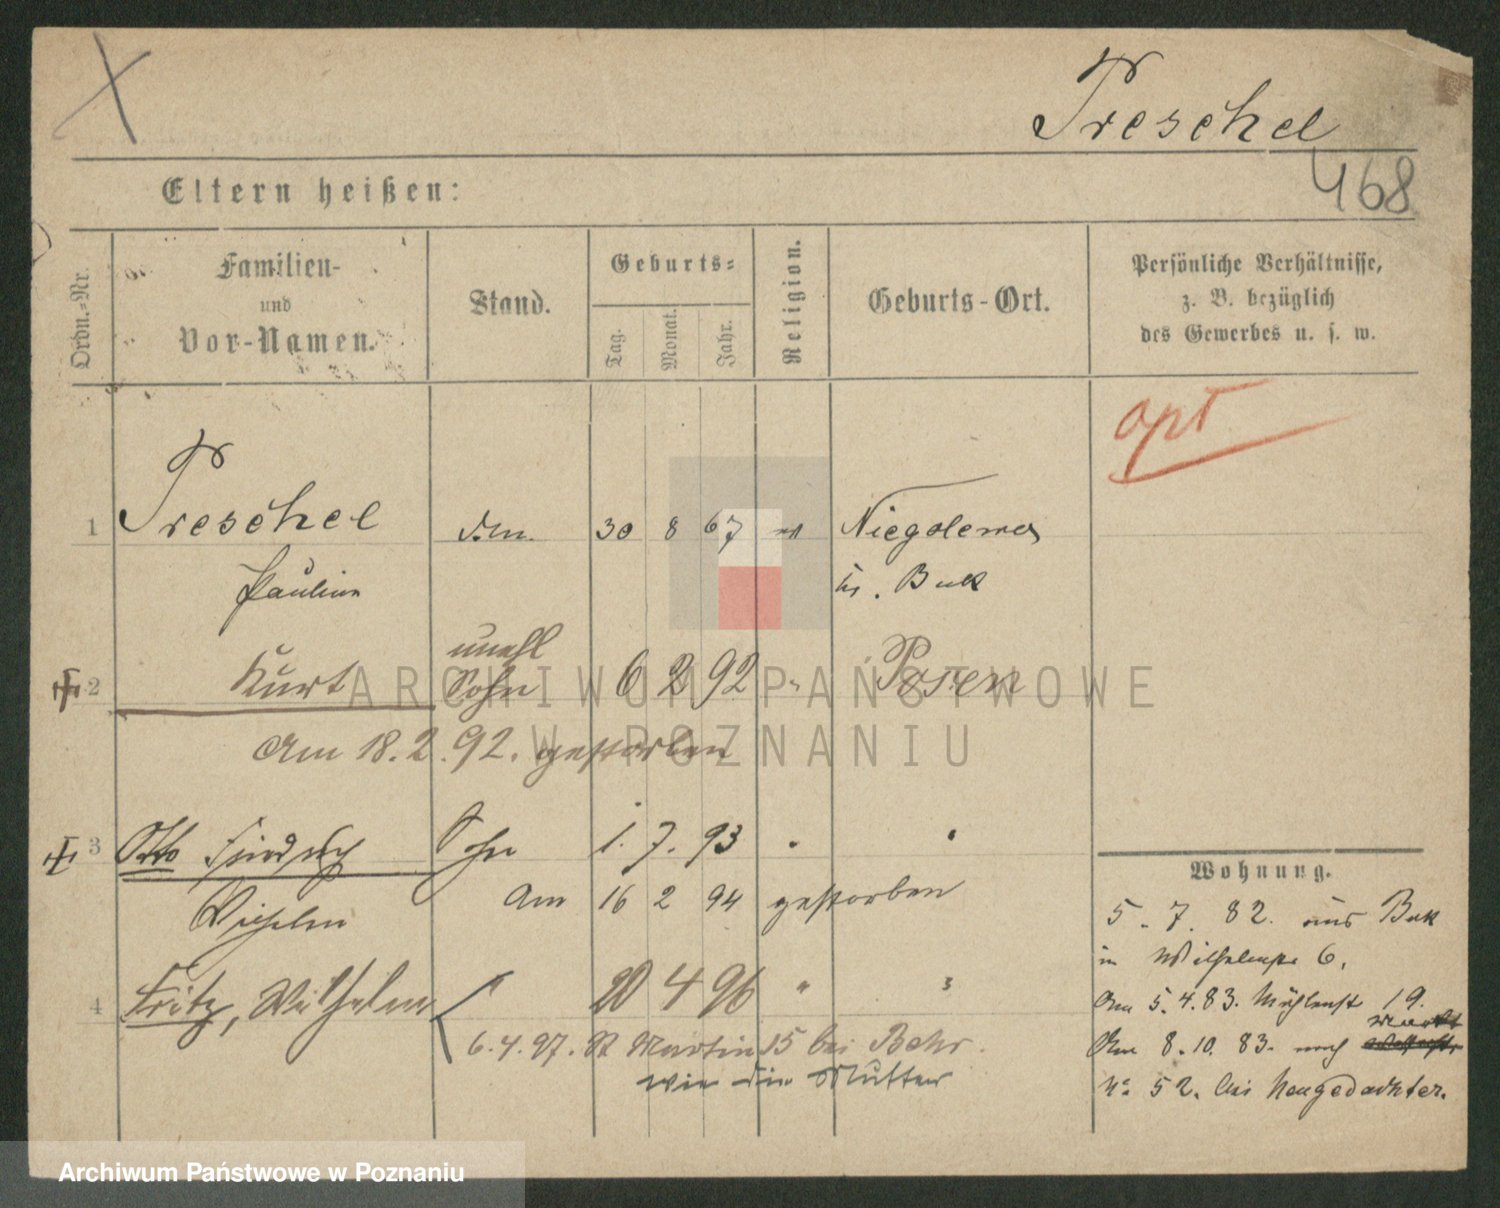 Treschel
468
Eltern heißen:
Ordn.-Nr.
Familien-
und
Vor-Namen.
Stand.
Geburts-
Tag.
Monat.
Jahr.
Religion.
Geburts-Ort.
Persönliche Verhältnisse,
z. B. bezüglich
des Gewerbes u. s. w.
opt
1 Treschel 30 8 67 Niegolewo
Pauline Buk
2 Kurt unehl Sohn 6 2 92 " Posen
Am 18.2.92. gestorben
3 Otto Friedrich Sohn 1. 7. 93
Wilhelm Am 16 2 94 gestorben
4 Fritz, Wilhelm 20 4 96 "
6.4.97. St Martin 15 bei Behr.
wie die Mutter
Wohnung.
5. 7. 82. aus Buk
in Wilhelmstr 6.
Am 5.4.83. Mühlenstr 19.
Markt
Am 8.10.83. nach
No 52. bei Neugedachter.
ARCHIWUM PAŃSTWOWE
W POZNANIU
Archiwum Państwowe w Poznaniu